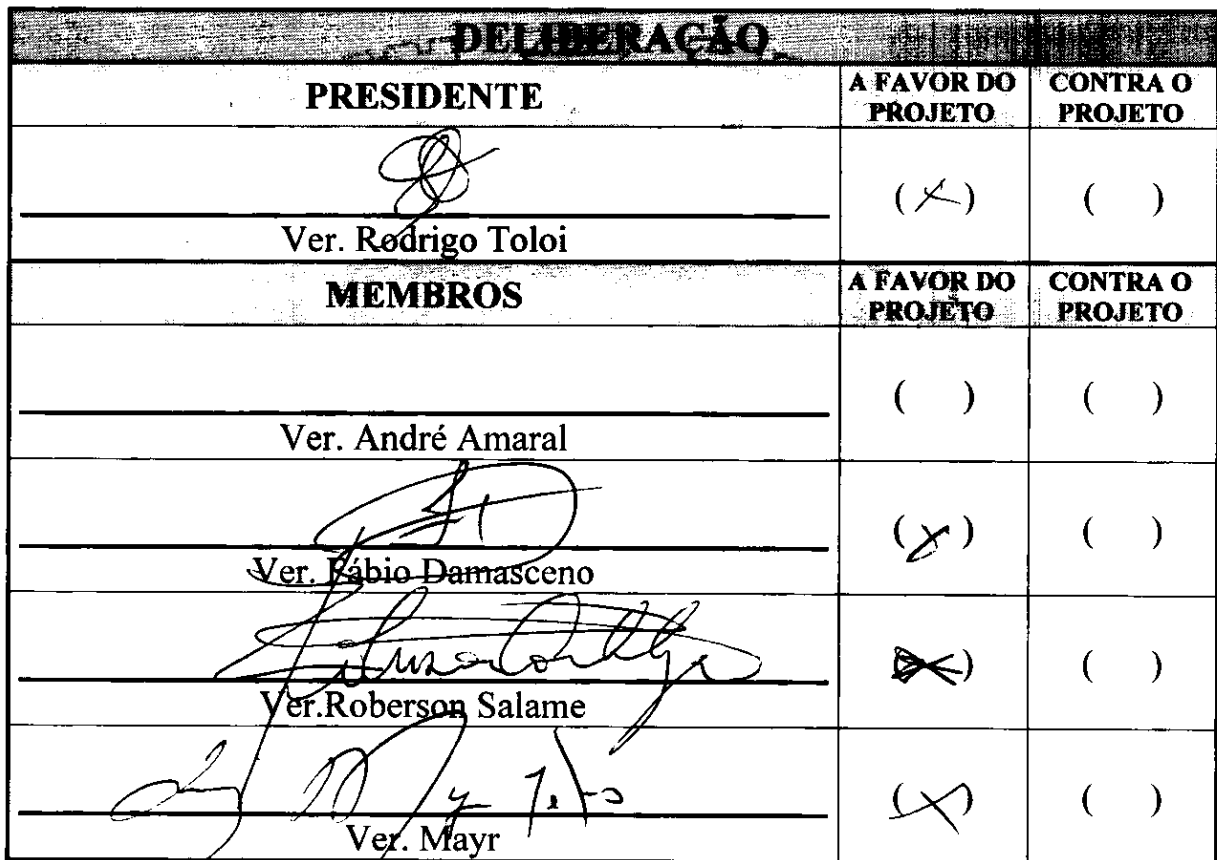 DELIBERAÇÃO
PRESIDENTE A FAVOR DO PROJETO CONTRA O PROJETO
(X) ( )
Ver. Rodrigo Toloi
MEMBROS A FAVOR DO PROJETO CONTRA O PROJETO
( ) ( )
Ver. André Amaral
(X) ( )
Ver. Fábio Damasceno
(X) ( )
Ver.Roberson Salame
(X) ( )
Ver. Mayr